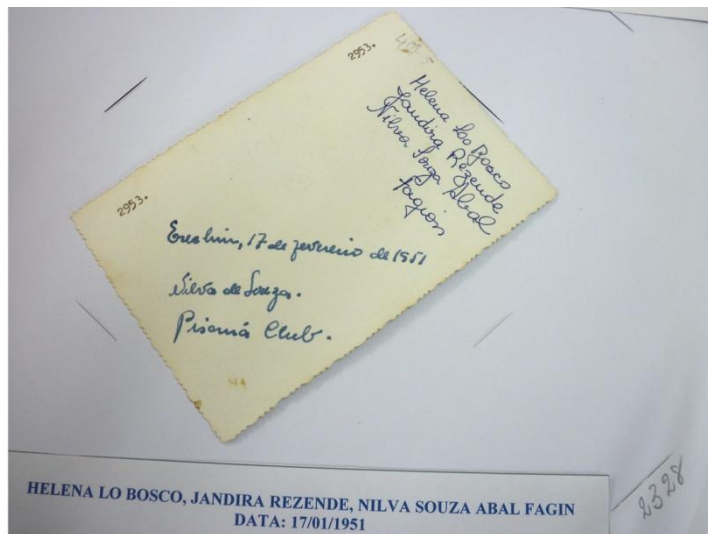 2953.
Helena Lo Bosco
Jandira Rezende
Nilva Souza Abal
Fagion
2953.
Erechim, 17 de fevereiro de 1951
Nilva de Souza.
Club.
HELENA LO BOSCO, JANDIRA REZENDE, NILVA SOUZA ABAL FAGIN
DATA: 17/01/1951
2328